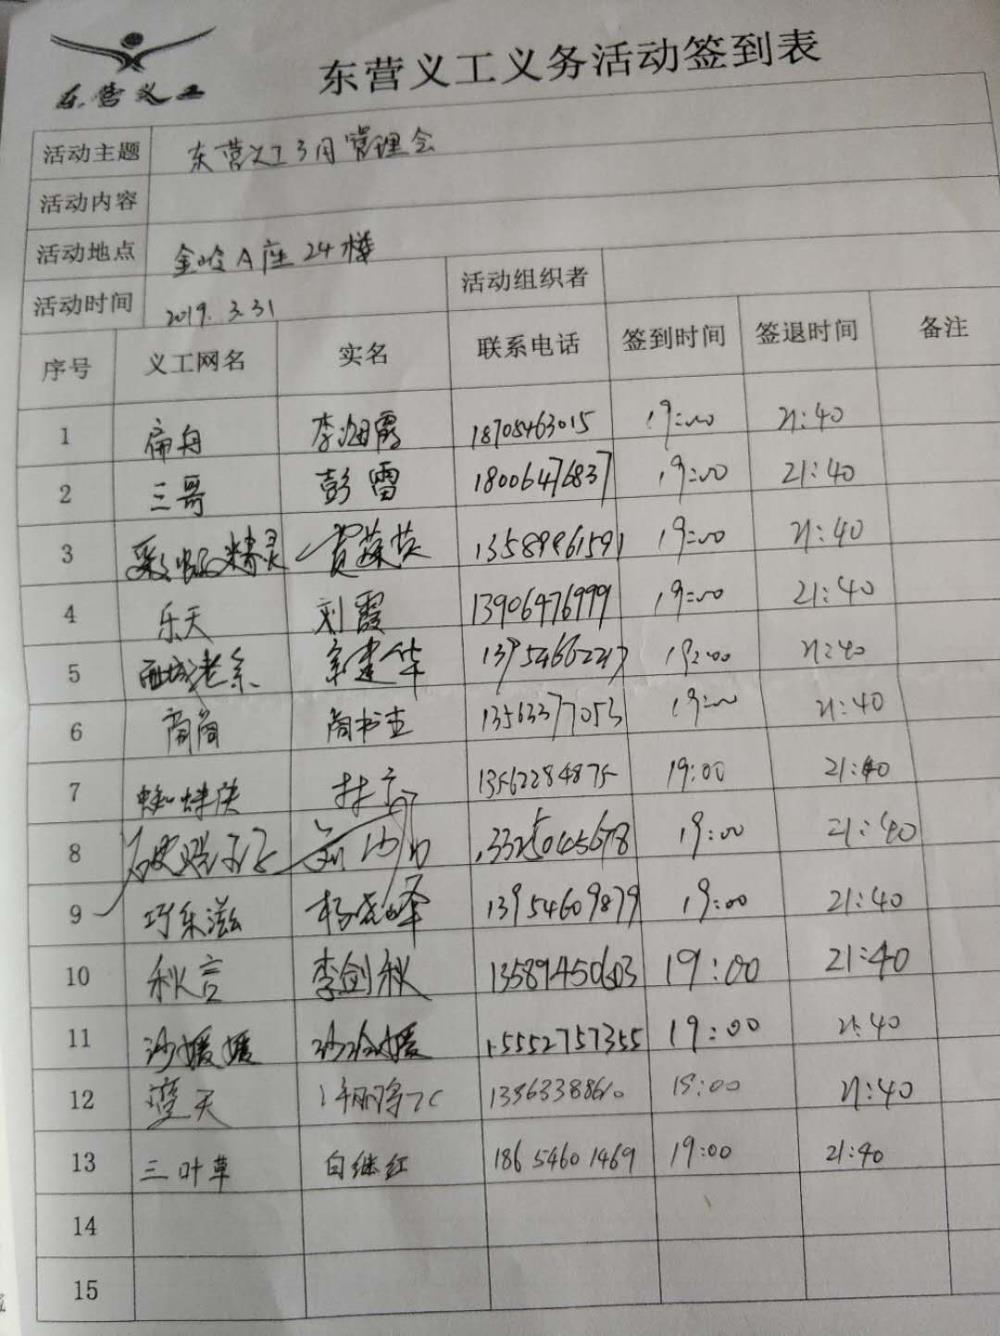 东营义工
东营义工义务活动签到表
活动主题 东营义工3月管理会
活动内容
活动地点 金岭A座24楼
活动时间 2019.3.31 活动组织者
序号 义工网名 实名 联系电话 签到时间 签退时间 备注
1 扁舟 李海霞 18705463015 19:00 21:40
2 三哥 彭雷 18006476837 19:00 21:40
3 精灵 贾 13589961591 19:00 21:40
4 乐天 刘霞 13906476999 19:00 21:40
5 西城老余 余建华 13954662217 19:00 21:40
6 商商 商书杰 13563377053 19:00 21:40
7 蜘蛛侠 13562284875 19:00 21:40
8 13325045678 19:00 21:40
9 巧乐滋 杨晓峰 13954609879 19:00 21:40
10 秋言 李剑秋 13589450603 19:00 21:40
11 沙媛媛 沙媛媛 15552757355 19:00 21:40
12 蓝天 19:00 21:40
13 三叶草 白继红 186 5460 1469 19:00 21:40
14
15